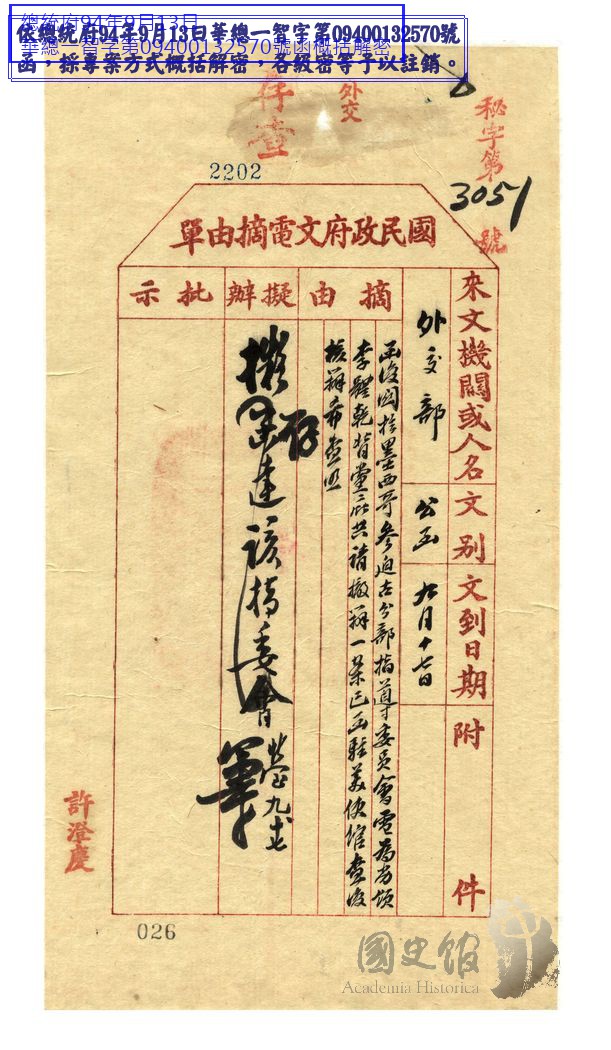 依總統府94年9月13日華總一智字第09400132570號
函，採專案方式概括解密，各級密等予以註銷。
總統府94年9月13日
華總一智字第09400132570號函概括解密
存查
外交
秘字第
3051
號
2202
國民政府文電摘由單
來文機關或人名
文別
文到日期
附件
外交部
公函
九月十七日
摘由
函復關於墨西哥參迫古分部指導委員會電為劣領
李體乾背黨庇共請撤辦一案已函駐美使館查復
核辦希查照
擬辦
擬存
呈達該指委會
九十七
批示
許澄慶
026
國史館
Academia Historica